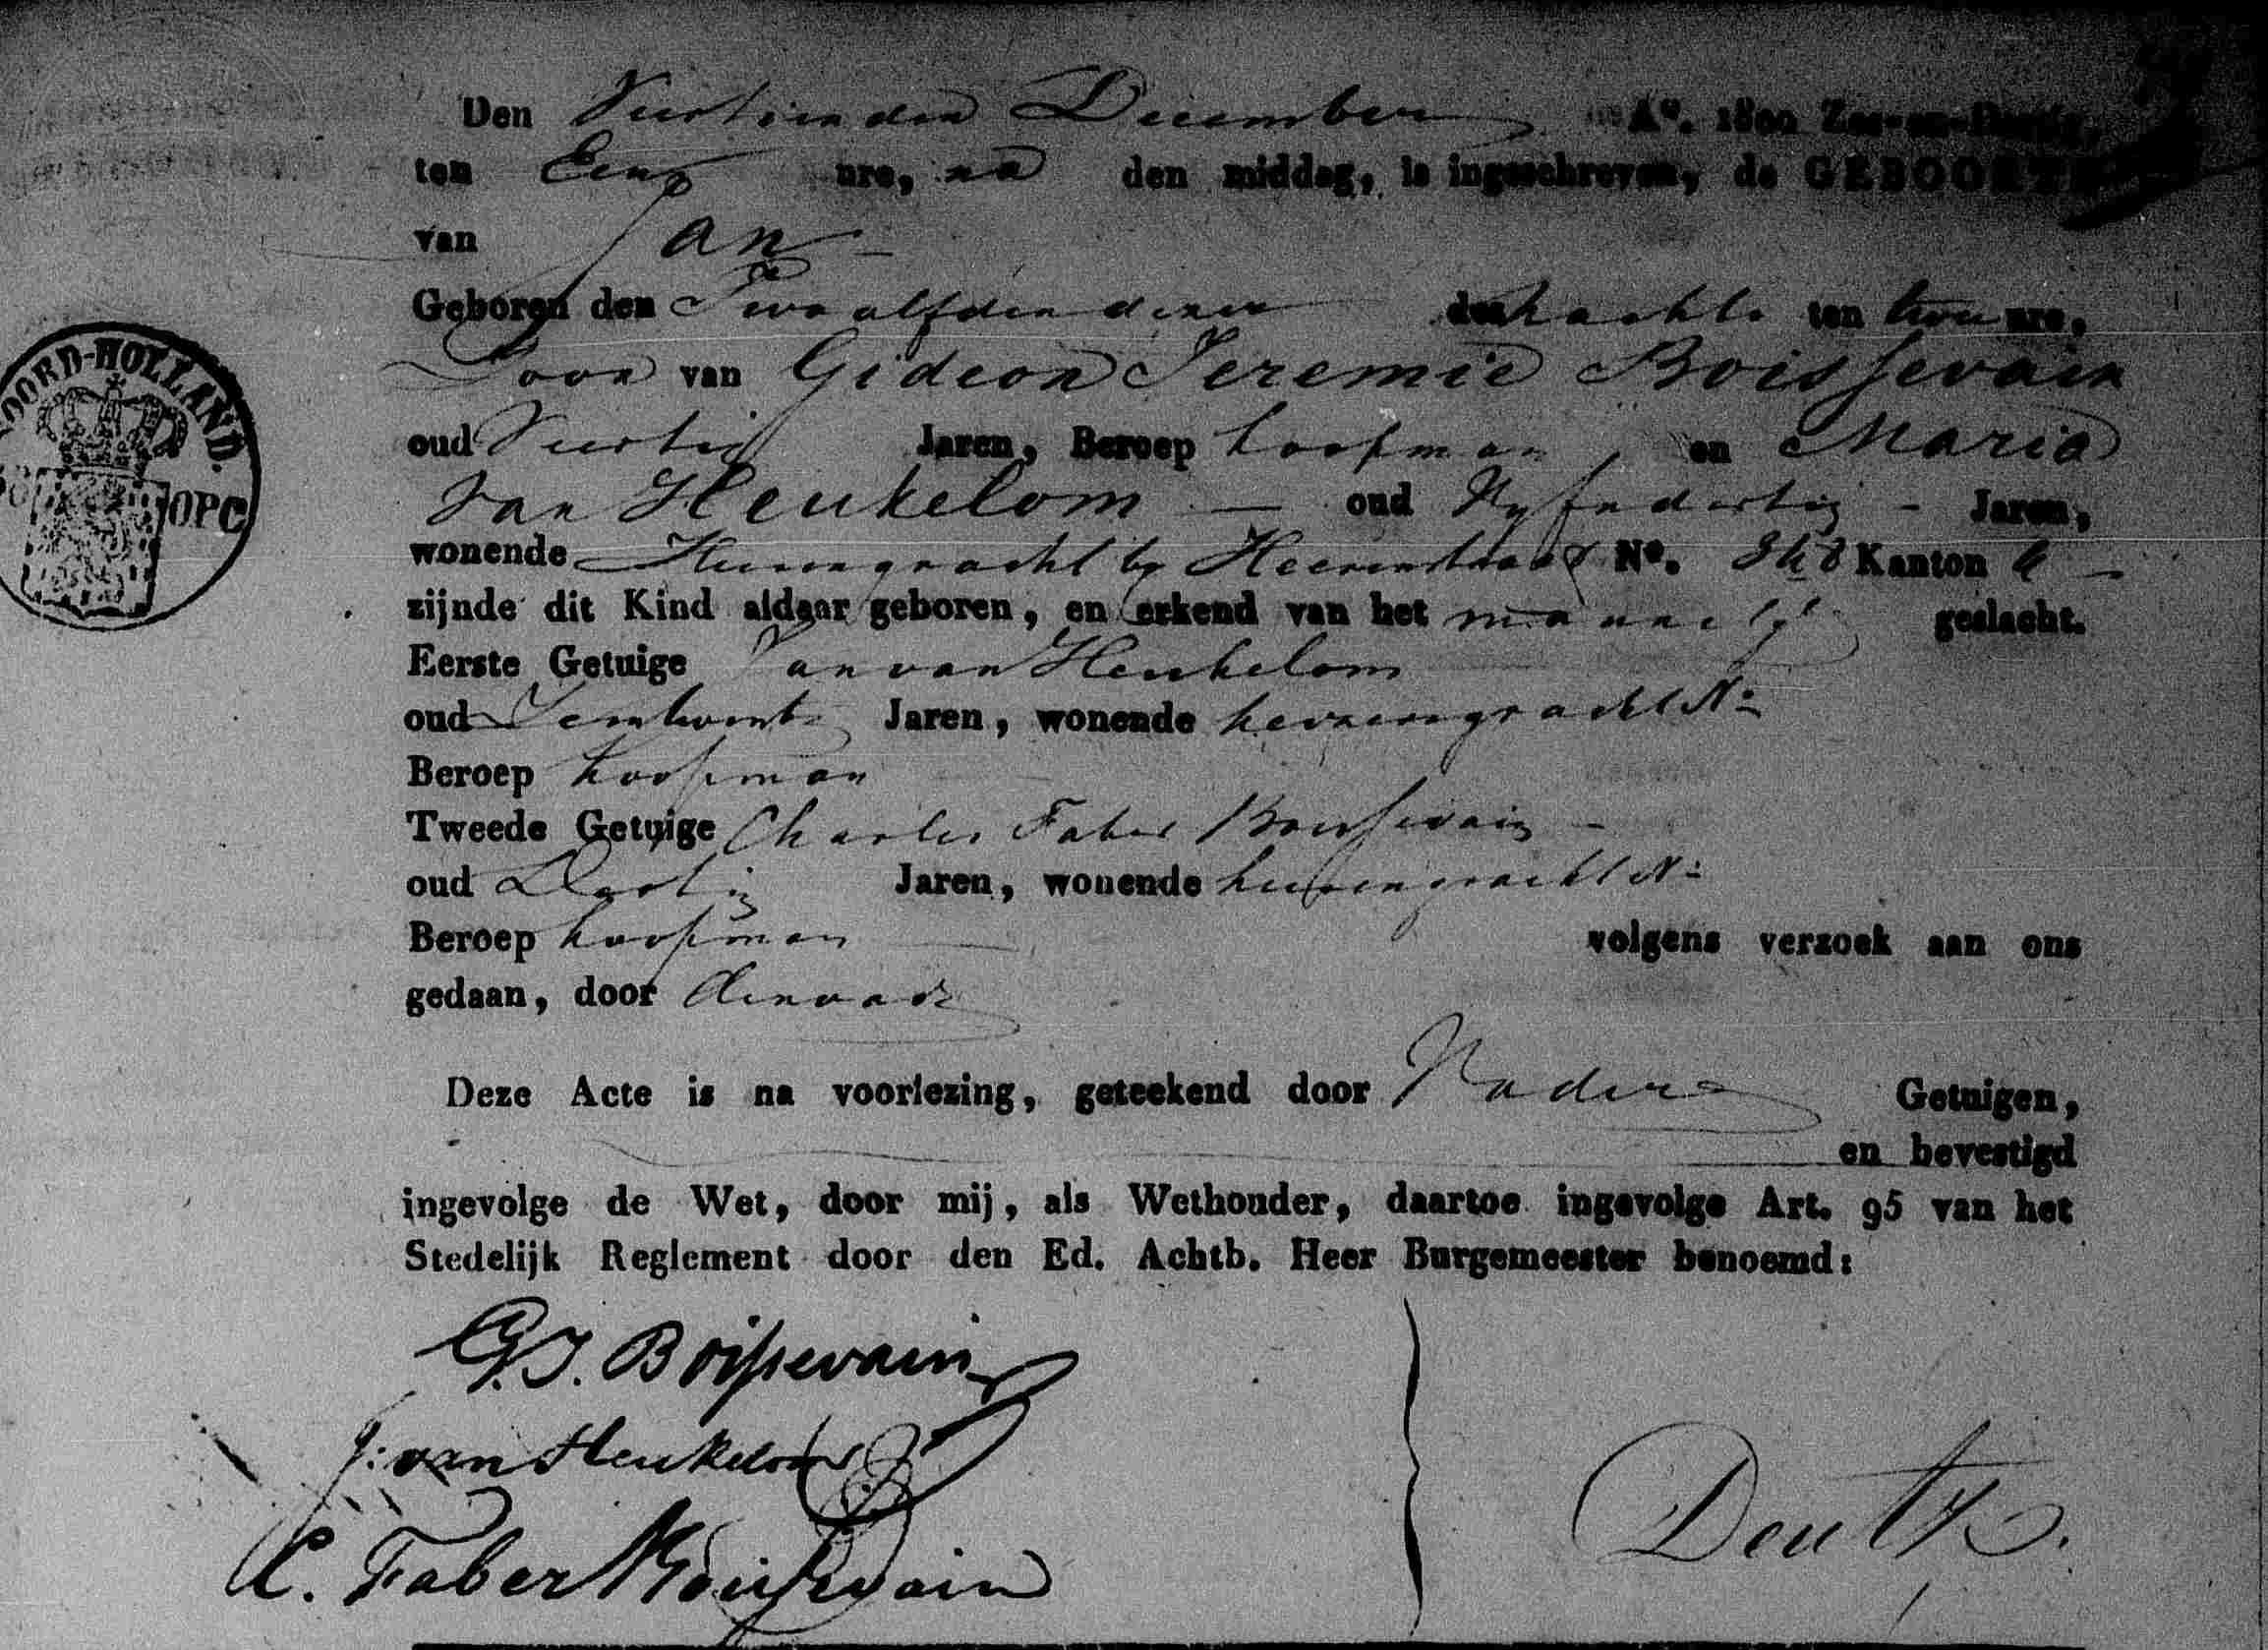 Den Veertienden December A°. 1800 Zes-en-Dertig,
ten Een ure, na den middag, is ingeschreven, de GEBOORTE
van Jan
Geboren den Twaalfden dezer des nachts ten twee ure,
Zoon van Gideon Jeremie Boissevain
oud Veertig Jaren, Beroep koopman, en Maria
van Heukelom — oud Vyfendertig - Jaren,
wonende Heerengracht by Heerenstraat N°. Kanton
zijnde dit Kind aldaar geboren, en erkend van het mannelyk geslacht.
Eerste Getuige Jan van Heukelom
oud Jaren, wonende keizersgracht N°
Beroep koopman
Tweede Getuige Charles Faber Boissevain -
oud Dertig Jaren, wonende heerengracht N°
Beroep koopman volgens verzoek aan ons
gedaan, door den vader
Deze Acte is na voorlezing, geteekend door Vader Getuigen,
en bevestigd
ingevolge de Wet, door mij, als Wethouder, daartoe ingevolge Art. 95 van het
Stedelijk Reglement door den Ed. Achtb. Heer Burgemeester benoemd:
G.J. Boissevain
J: van Heukelom
C. Faber Boissevain
Deutz.
NOORD-HOLLAND.
OPC